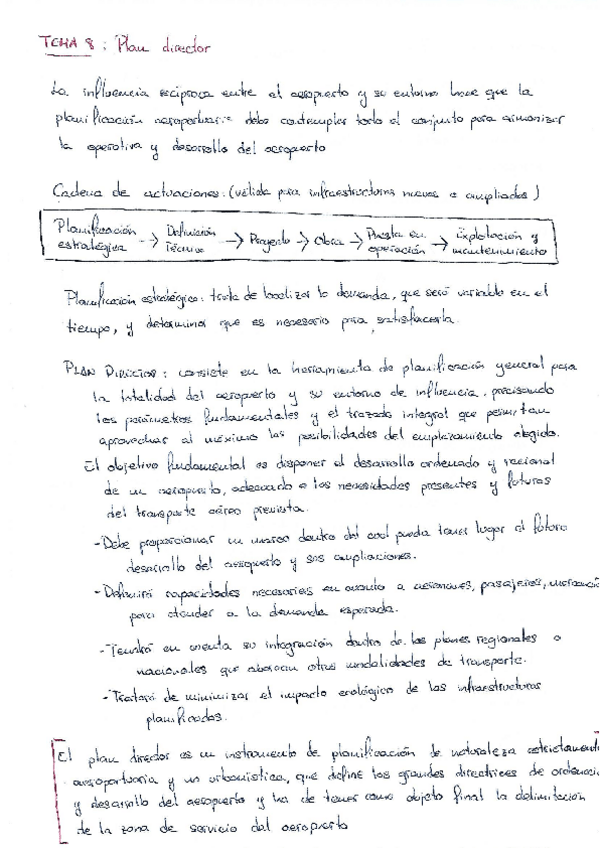 TEMA 8: Plan director
La influencia recíproca entre el aeropuerto y su entorno hace que la
planificación aeroportuaria debe contemplar todo el conjunto para armonizar
la operativa y desarrollo del aeropuerto
Cadena de actuaciones: (válida para infraestructuras nuevas o ampliadas)
Planificación estratégica → Definición Técnica → Proyecto → Obra → Puesta en operación → Explotación y mantenimiento
Planificación estratégica: trata de localizar la demanda, que será variable en el
tiempo, y determinar que es necesario para satisfacerla.
PLAN DIRECTOR: consiste en la herramienta de planificación general para
la totalidad del aeropuerto y su entorno de influencia, precisando
los parámetros fundamentales y el trazado integral que permitan
aprovechar al máximo las posibilidades del emplazamiento elegido.
El objetivo fundamental es disponer el desarrollo ordenado y racional
de un aeropuerto, adecuado a las necesidades presentes y futuras
del transporte aéreo prevista.
- Debe proporcionar un marco dentro del cual pueda tener lugar el futuro
desarrollo del aeropuerto y sus ampliaciones.
- Definirá capacidades necesarias en cuanto a aeronaves, pasajeros,
para atender a la demanda esperada.
- Tendrá en cuenta su integración dentro de los planes regionales o
nacionales que abarcan otras modalidades de transporte.
- Tratará de minimizar el impacto ecológico de las infraestructuras
planificadas.
El plan director es un instrumento de planificación de naturaleza estrictamente
aeroportuaria y no urbanística, que define las grandes directrices de
y desarrollo del aeropuerto y ha de tener como objeto final la delimitación
de la zona de servicio del aeropuerto